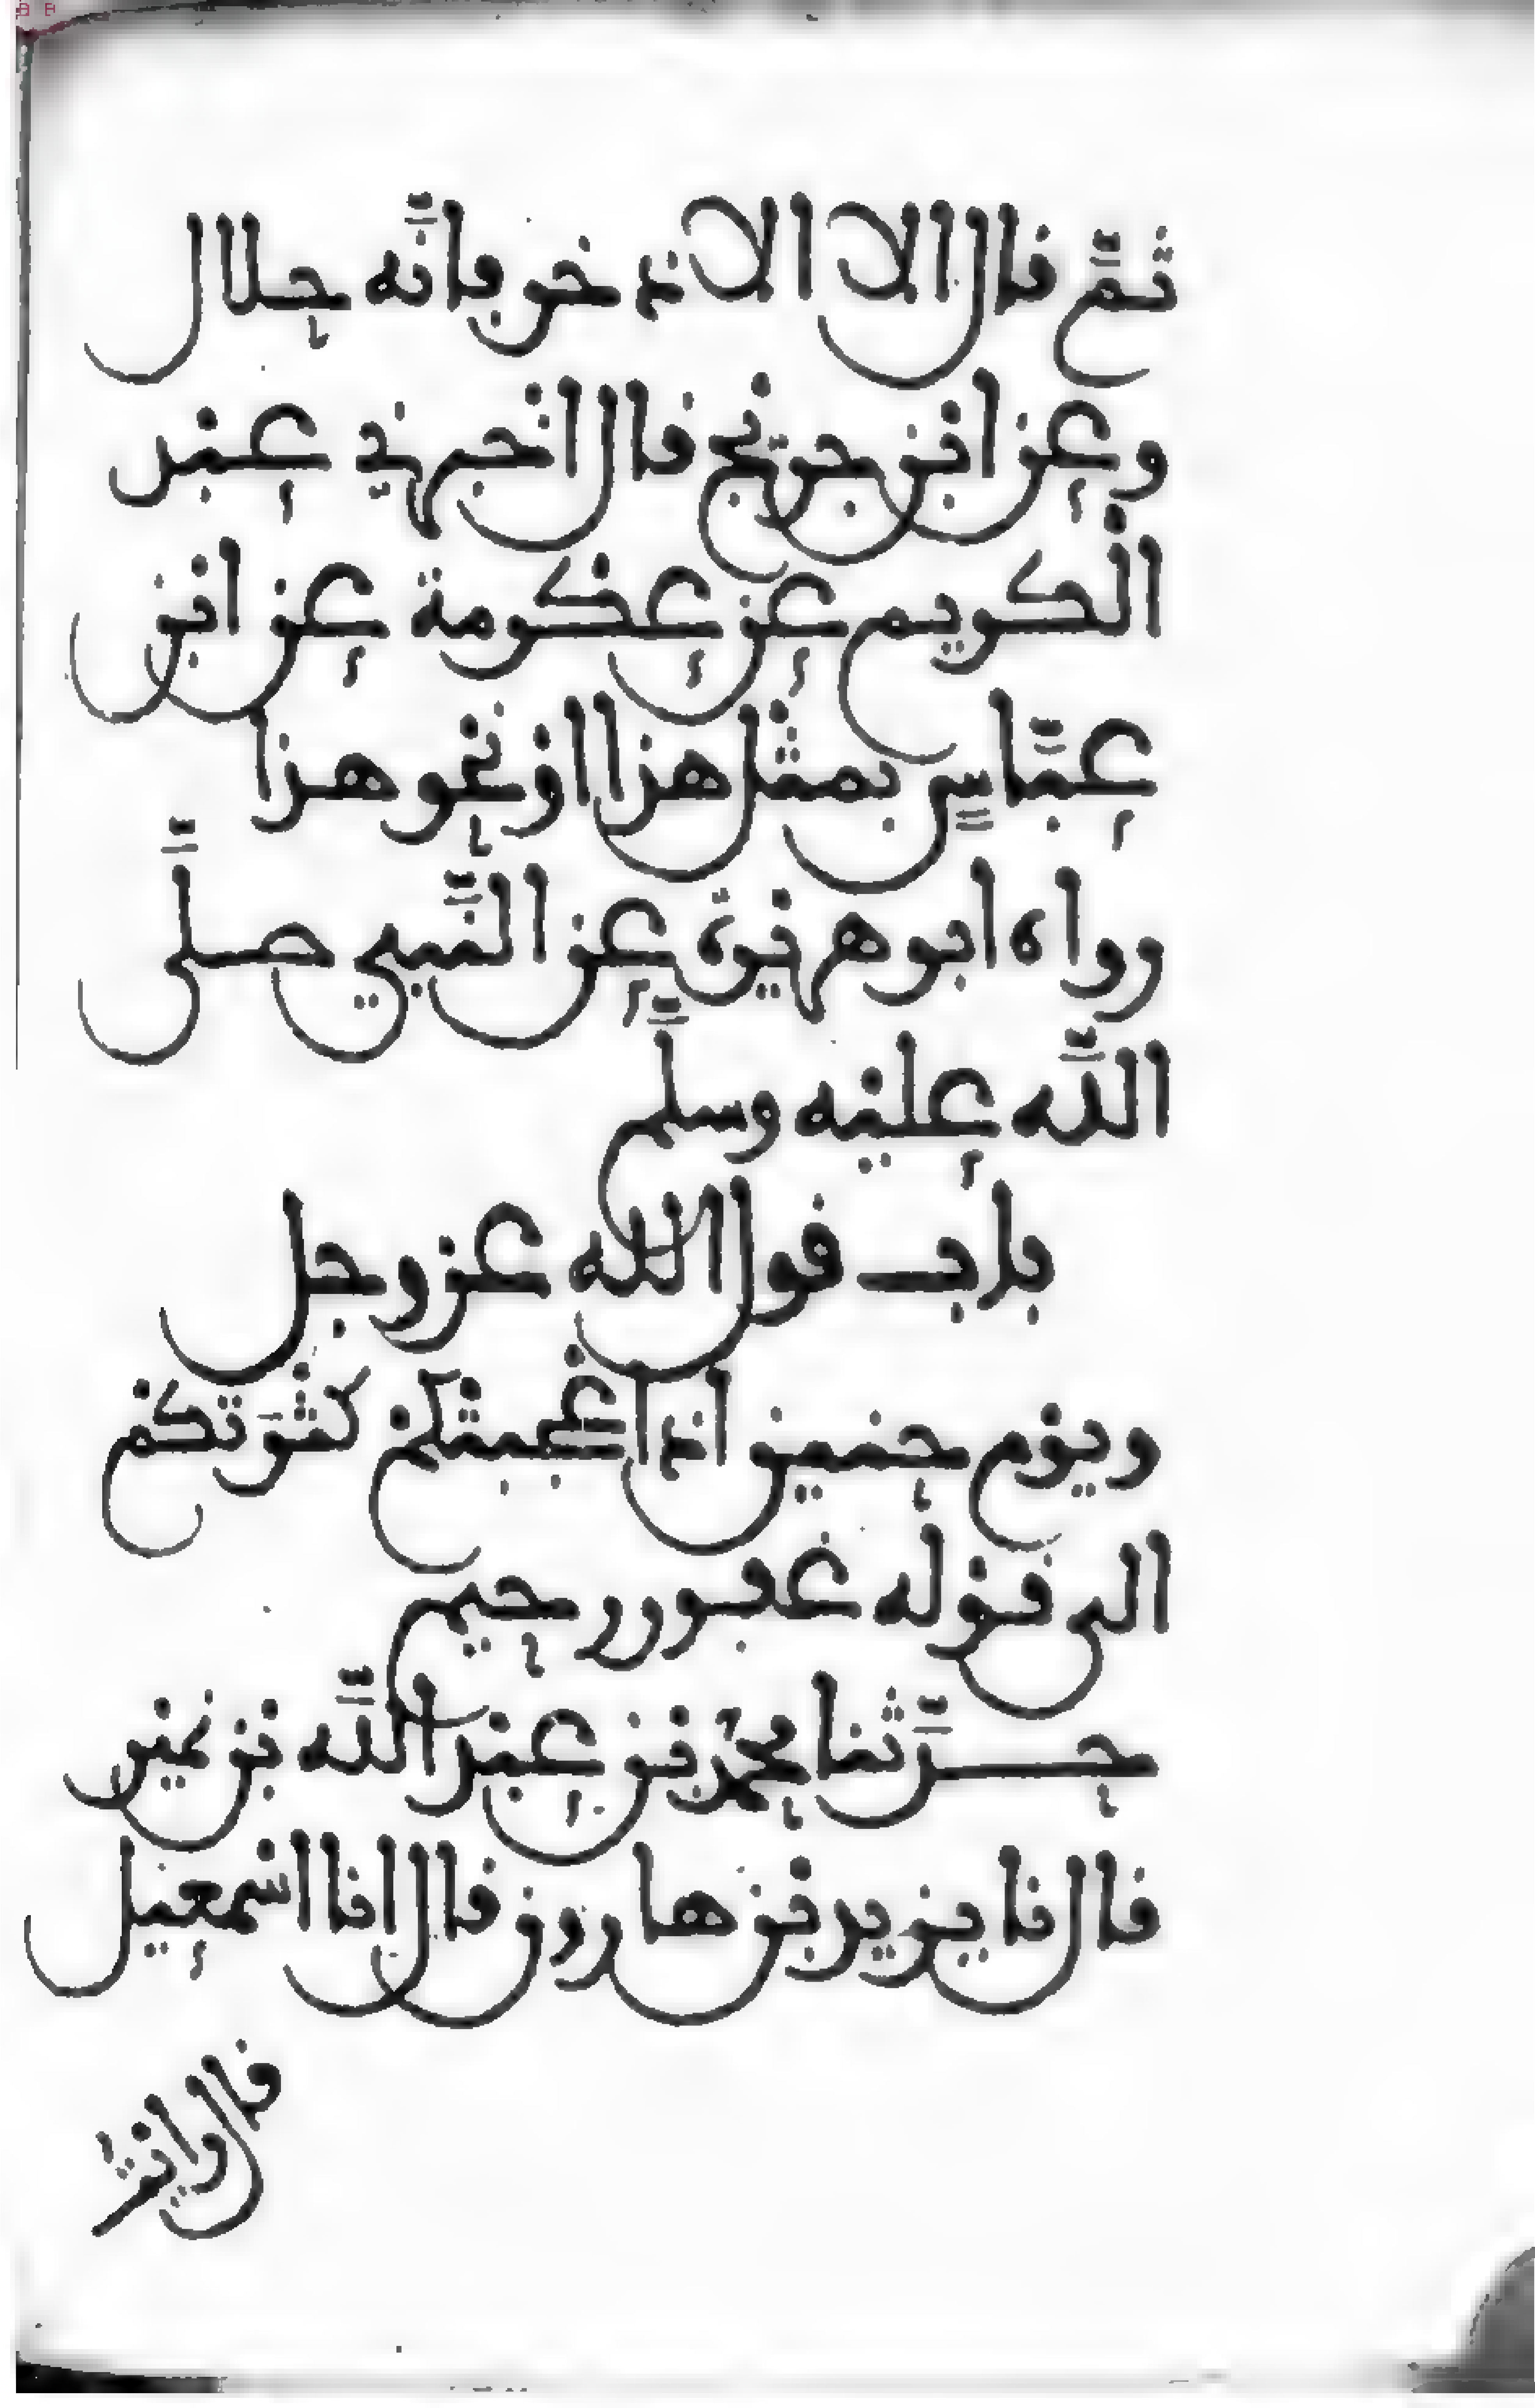 ثمّ قال الا الاذخر فانّه حلال
وعن ابن جريج قال اخبرني عبد
الكريم عن عكرمة عن ابن
عبّاس بمثل هذا او نحو هذا
رواه ابو هريرة عن النّبي صلّى
اللّه عليه وسلّم
باب قول الله عز وجل
ويوم حنين اذ اعجبتكم كثرتكم
الى قوله غفور رحيم
حدّثنا محمد بن عبد اللّه بن نمير
قال نا يزيد بن هارون قال انا اسمعيل
قال رايت